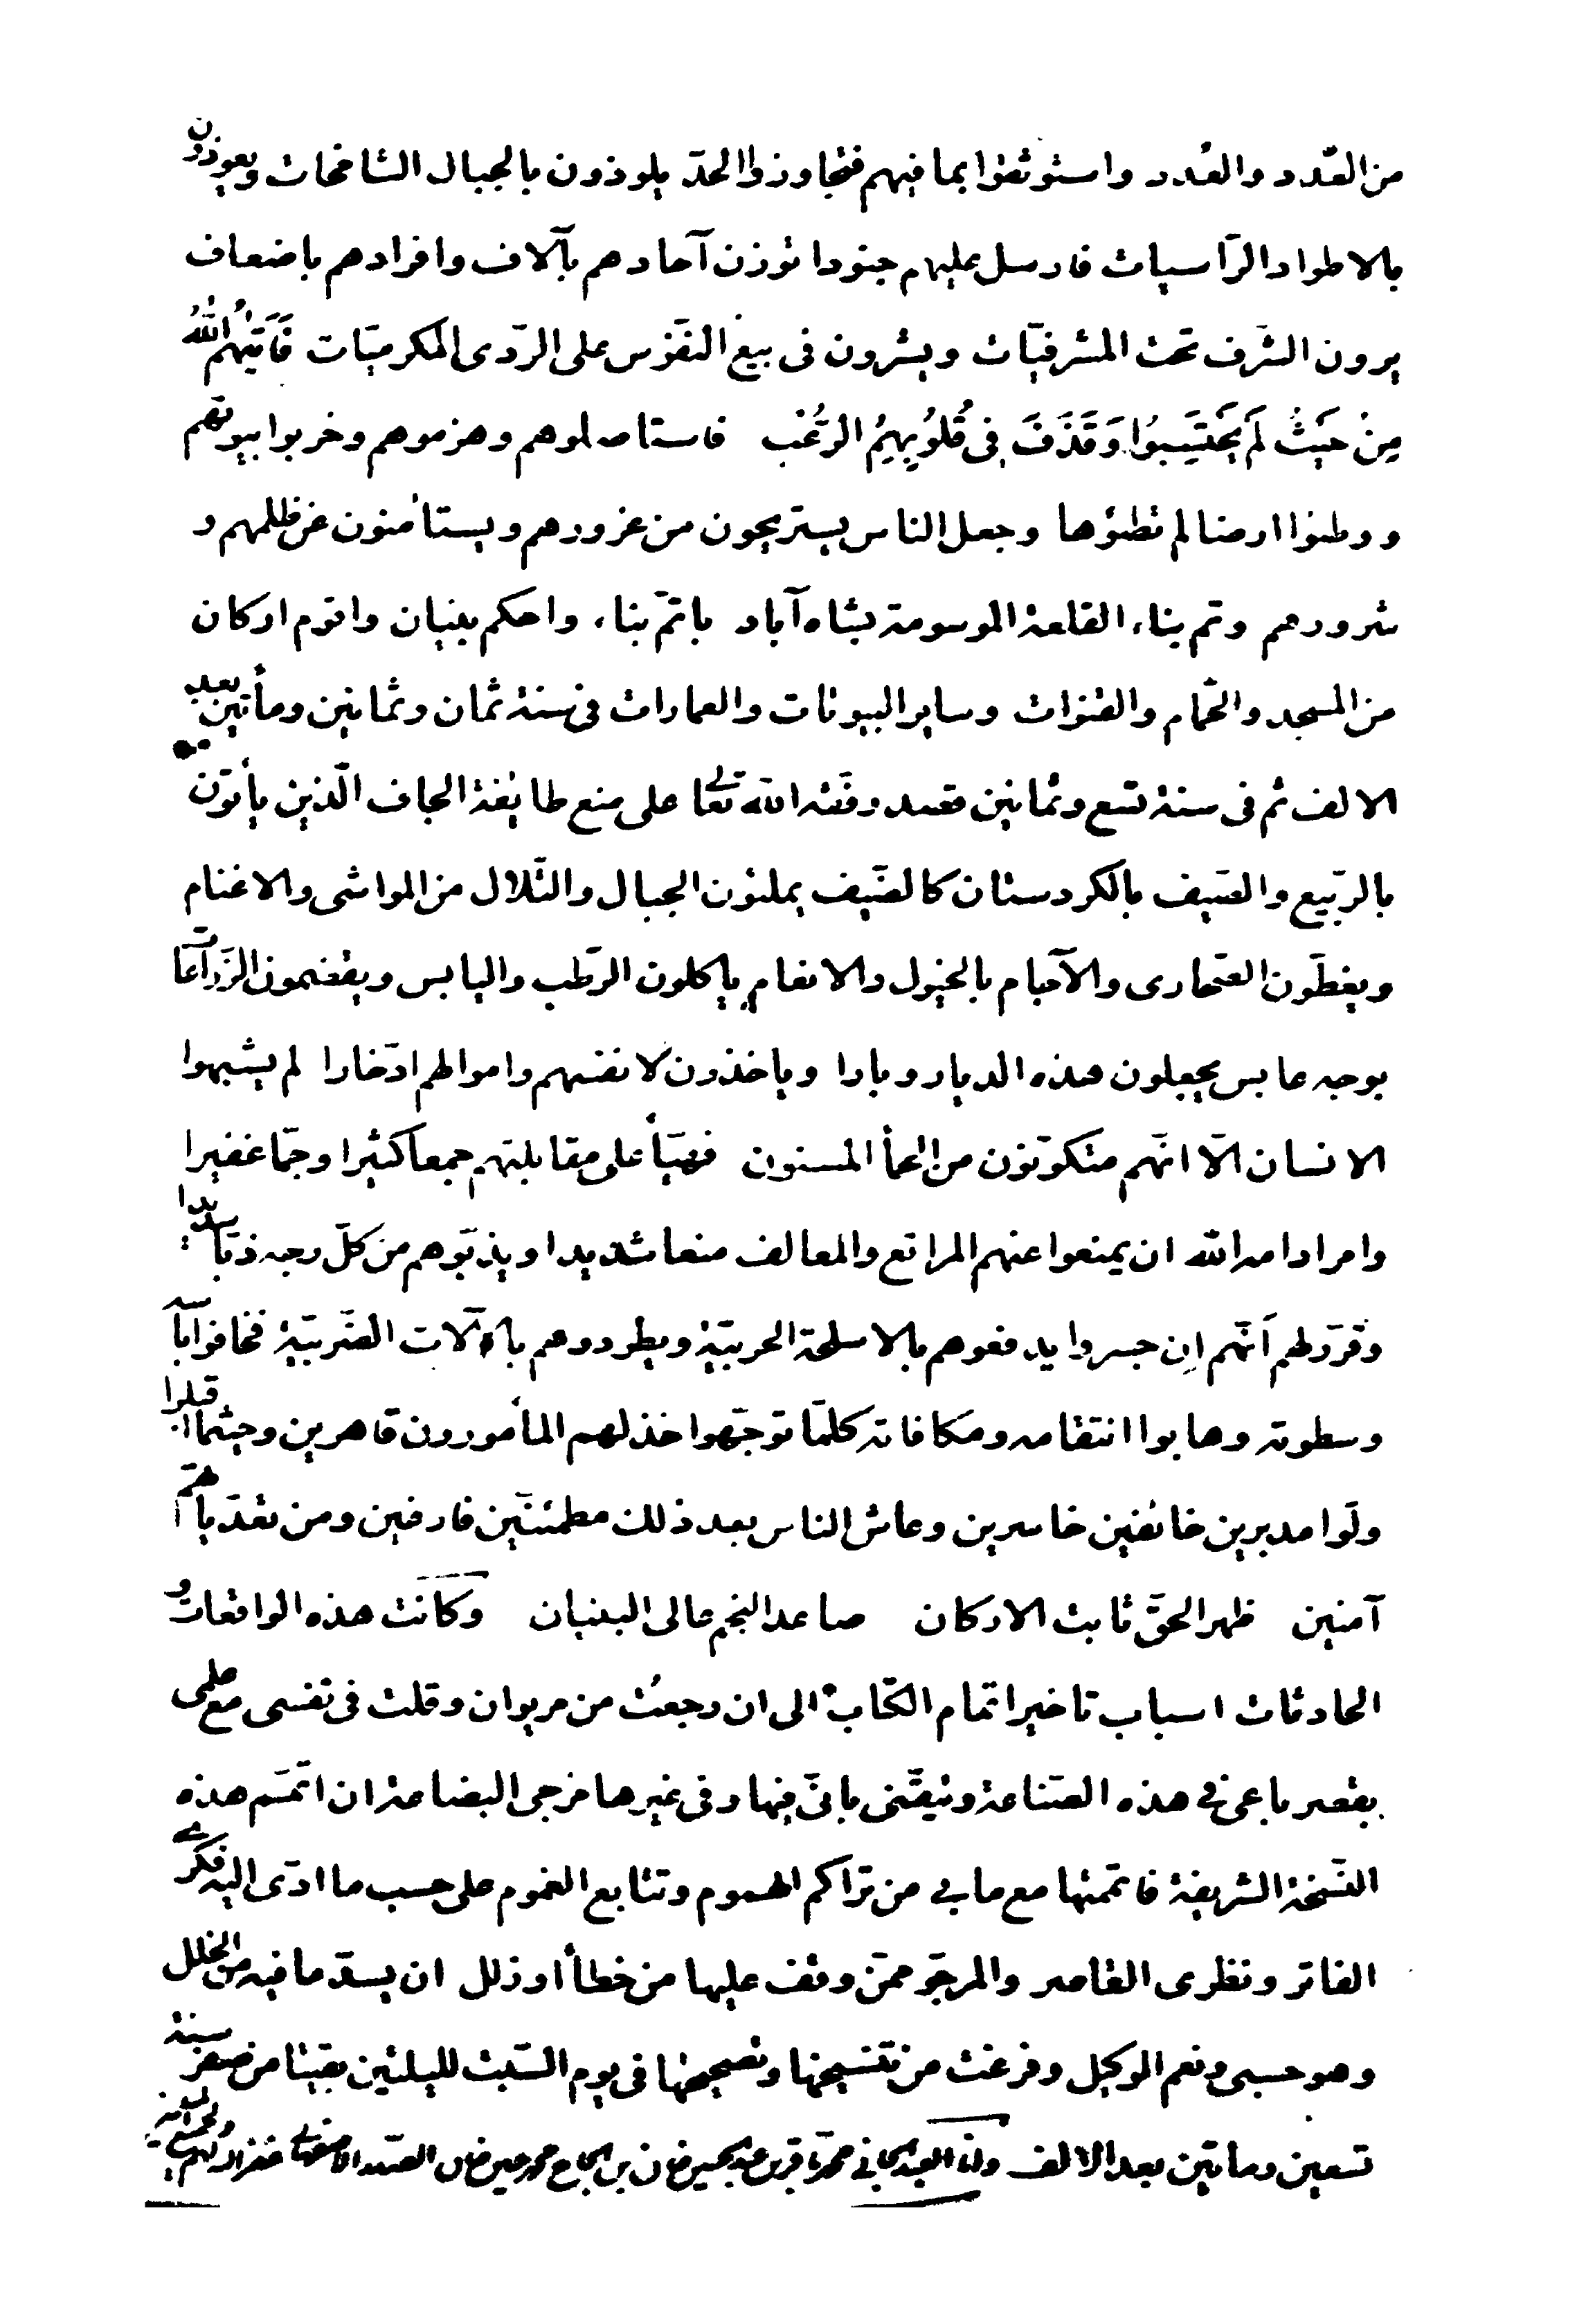 من العَدد والعُدد واستوثقوا بما فيهم فتجاوزوا الحدّ يلوذون بالجبال الشامخات ويعوذون
بالاطواد الرّاسيات فارسل عليهم جنودا توزن آحادهم بآلاف وافرادهم باضعاف
يرون الشّرف تحت المشرفيّات ويشرون فى بيع النفوس على الردّى المكرميّات فَاَتيٰهُمُ اللّٰهُ
مِنْ حَيْثُ لَمْ يَحْتَسِبُوا وَقَذَفَ فِى قُلُوبِهِمُ الرُّعْبَ فاستاصلوهم وهزموهم وخربوا بيوتهم
ووطئوا ارضا لم تطئوها وجعل الناس يستريحون من غرورهم ويستأمنون عن ظلمهم و
شرورهم وتم بناء القلعة الموسومة بشاه آباد باتمّ بناء واحكم بنيان واقوم اركان
من المسجد والحمّام والقنوات وساير البيوتات والعمارات فى سنة ثمان وثمانين ومأتين بعد
الالف ثم فى سنة تسع وثمانين قصد وفّقه اللّه تعالى على منع طايفة الجاف الّذين يأتون
بالرّبيع والصّيف بالكردستان كالضّيف يملئون الجبال والتّلال من المواشى والاغنام
ويغطّون الصّحارى والآجام بالخيول والانعام ياكلون الرّطب واليابس ويقضمون الزّراعات
بوجه عابس يجعلون هذه الديار وبارا وياخذون لانفسهم واموالهم ادّخارا لم يشبهوا
الانسان الّا انّهم متكوّنون من الحمأ المسنون فهيّأ على مقابلتهم جمعا كثيرا وجمّا غفيرا
وامر ادامه اللّه ان يمنعوا عنهم المراتع والمعالف منعا شديدا ويذبّوهم من كلّ وجه ذبّا سديدا
وقرّر لهم اَنّهم اِن جسروا يدفعوهم بالاسلحة الحربيّة ويطردوهم بالآلات الضّربيّة فخافوا باسه
وسطوته وهابوا انتقامه ومكافاته كلّما توجّهوا خذلهم المأمورون قاهرين وحيثما اقبلوا
ولّوا مدبرين خائفين خاسرين وعاش الناس بعد ذلك مطمئنّين فارغين ومن تعدّياتهم
آمنين ظهر الحقّ ثابت الاركان صاعد النجم عالى البنيان وكانت هذه الواقعات و
الحادثات اسباب تاخير اتمام الكتاب الى ان رجعت من مريوان وقلت فى نفسى مع علمى
بقصر باعى فى هذه الصّناعة وتيقّنى بانّى فيها وفى غيرها مزجى البضاعة ان اتمّم هذه
النّسخة الشريفة فاتممتها مع ما بى من تراكم الهموم وتتابع الغموم على حسب ما ادّى اليه فكرى
الفاتر ونظرى القاصر والمرجوّ ممّن وقف عليها من خطأ او زلل ان يسدّ ما فيه من الخلل
وهو حسبى ونعم الوكيل وفرغت من تنسيخها وتصحيحها فى يوم السّبت لليلتين بقيتا من صفر سنة
تسعين وماتين بعد الالف وانا العبد الجانى محمّد باقر بن عبد الحسين خان بن الحاج محمد حسين خان الصّدر الاصفهانى غفر اللّه لهم